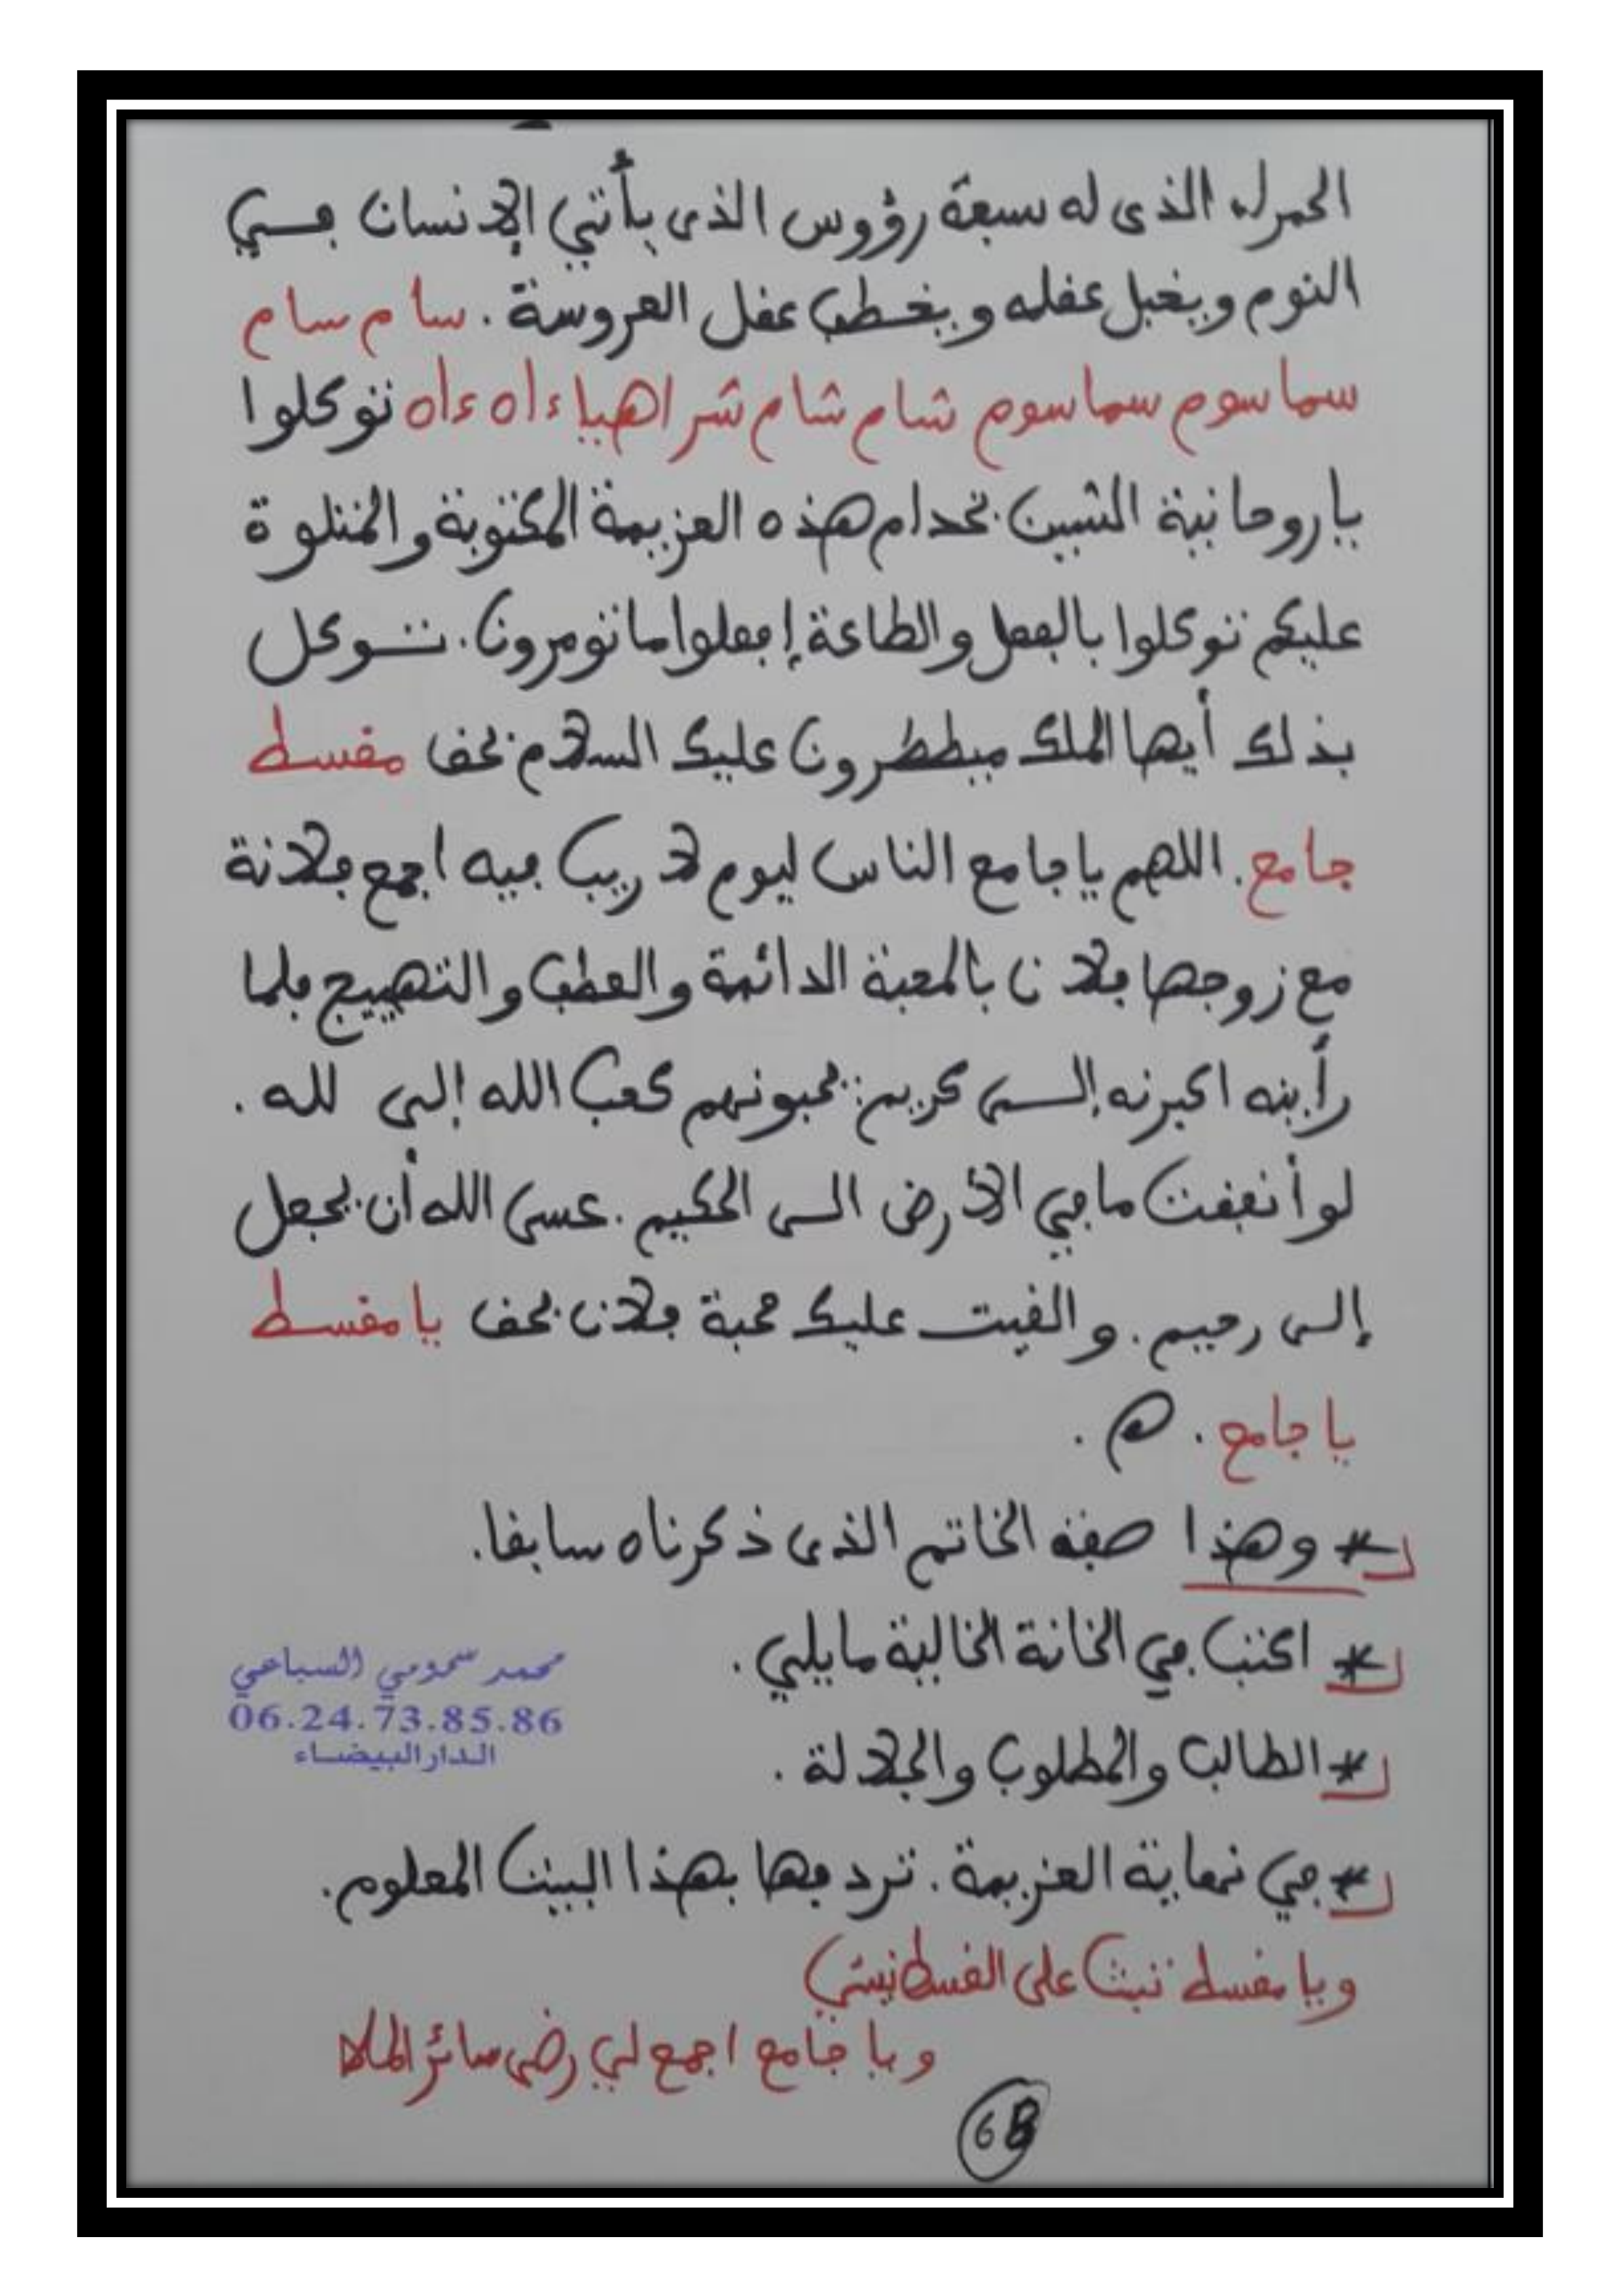 الحمرله الذى له سبعة رؤوس الذى يأتي الإنسان في
النوم ويخبل عقله ويخطب عقل العروسة . سام سام
سماسوم سماسوم شام شام شراهيا ءاه ءاه توكلوا
ياروحانية الشين بخدام هذه العزيمة المكتوبة والمتلوة
عليكم توكلوا بالفعل والطاعة إفعلوا ما تومرون. تـوكل
بذلك أيها الملك ميططرون عليك السلام بحق مقسط
جامع. اللهم ياجامع الناس ليوم لا ريب فيه اجمع فلانة
مع زوجها فلان بالمحبة الدائمة والعطف والتهييج فلما
رأينه اكبرنه إلـى كريم: يحبونهم كحب الله إلى لله .
لو أنفقت ما في الأرض الى الحكيم . عسى الله أن يجعل
إلى رحيم . والقيت عليك محبة فلان بحق يا مقسط
يا جامع . هـ .
* وهذا صفة الخاتم الذى ذكرناه سابقا.
* اكتب في الخانة الخالية مايلي .
محمد سمومي السباعي
06.24.73.85.86
الدار البيضاء
* الطالب والمطلوب والجلالة .
* في نهاية العزيمة . تردفها بهذا البيت المعلوم.
ويا مقسط ثبت على القسط نيتي
ويا جامع اجمع لي رضى سائر الملا